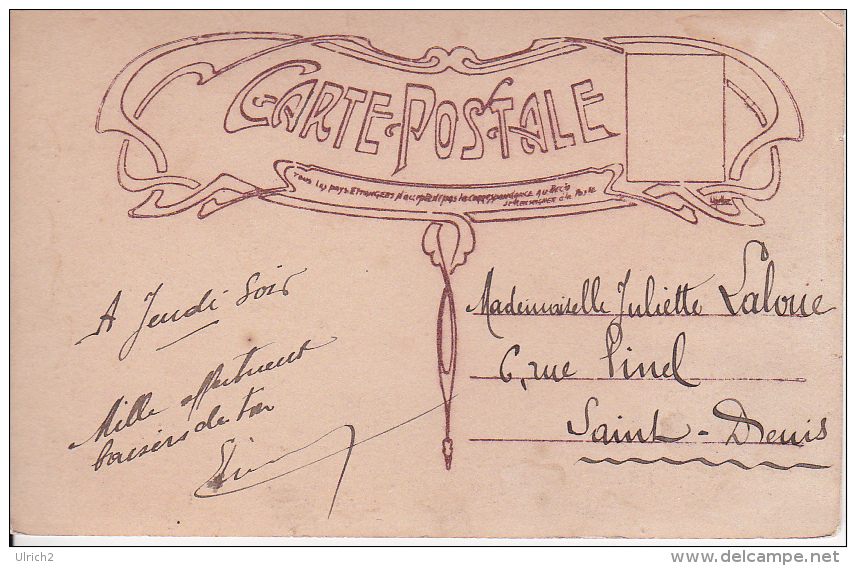 CARTE-POSTALE
Tous les pays ETRANGERS n'acceptent pas la correspondance au Recto
se renseigner à la Poste
A Jeudi soir
Mille affectueux
baisers de ton
Mademoiselle Juliette Laloue
6, rue Pinel
Saint-Denis
Ulrich2
delcampe.net